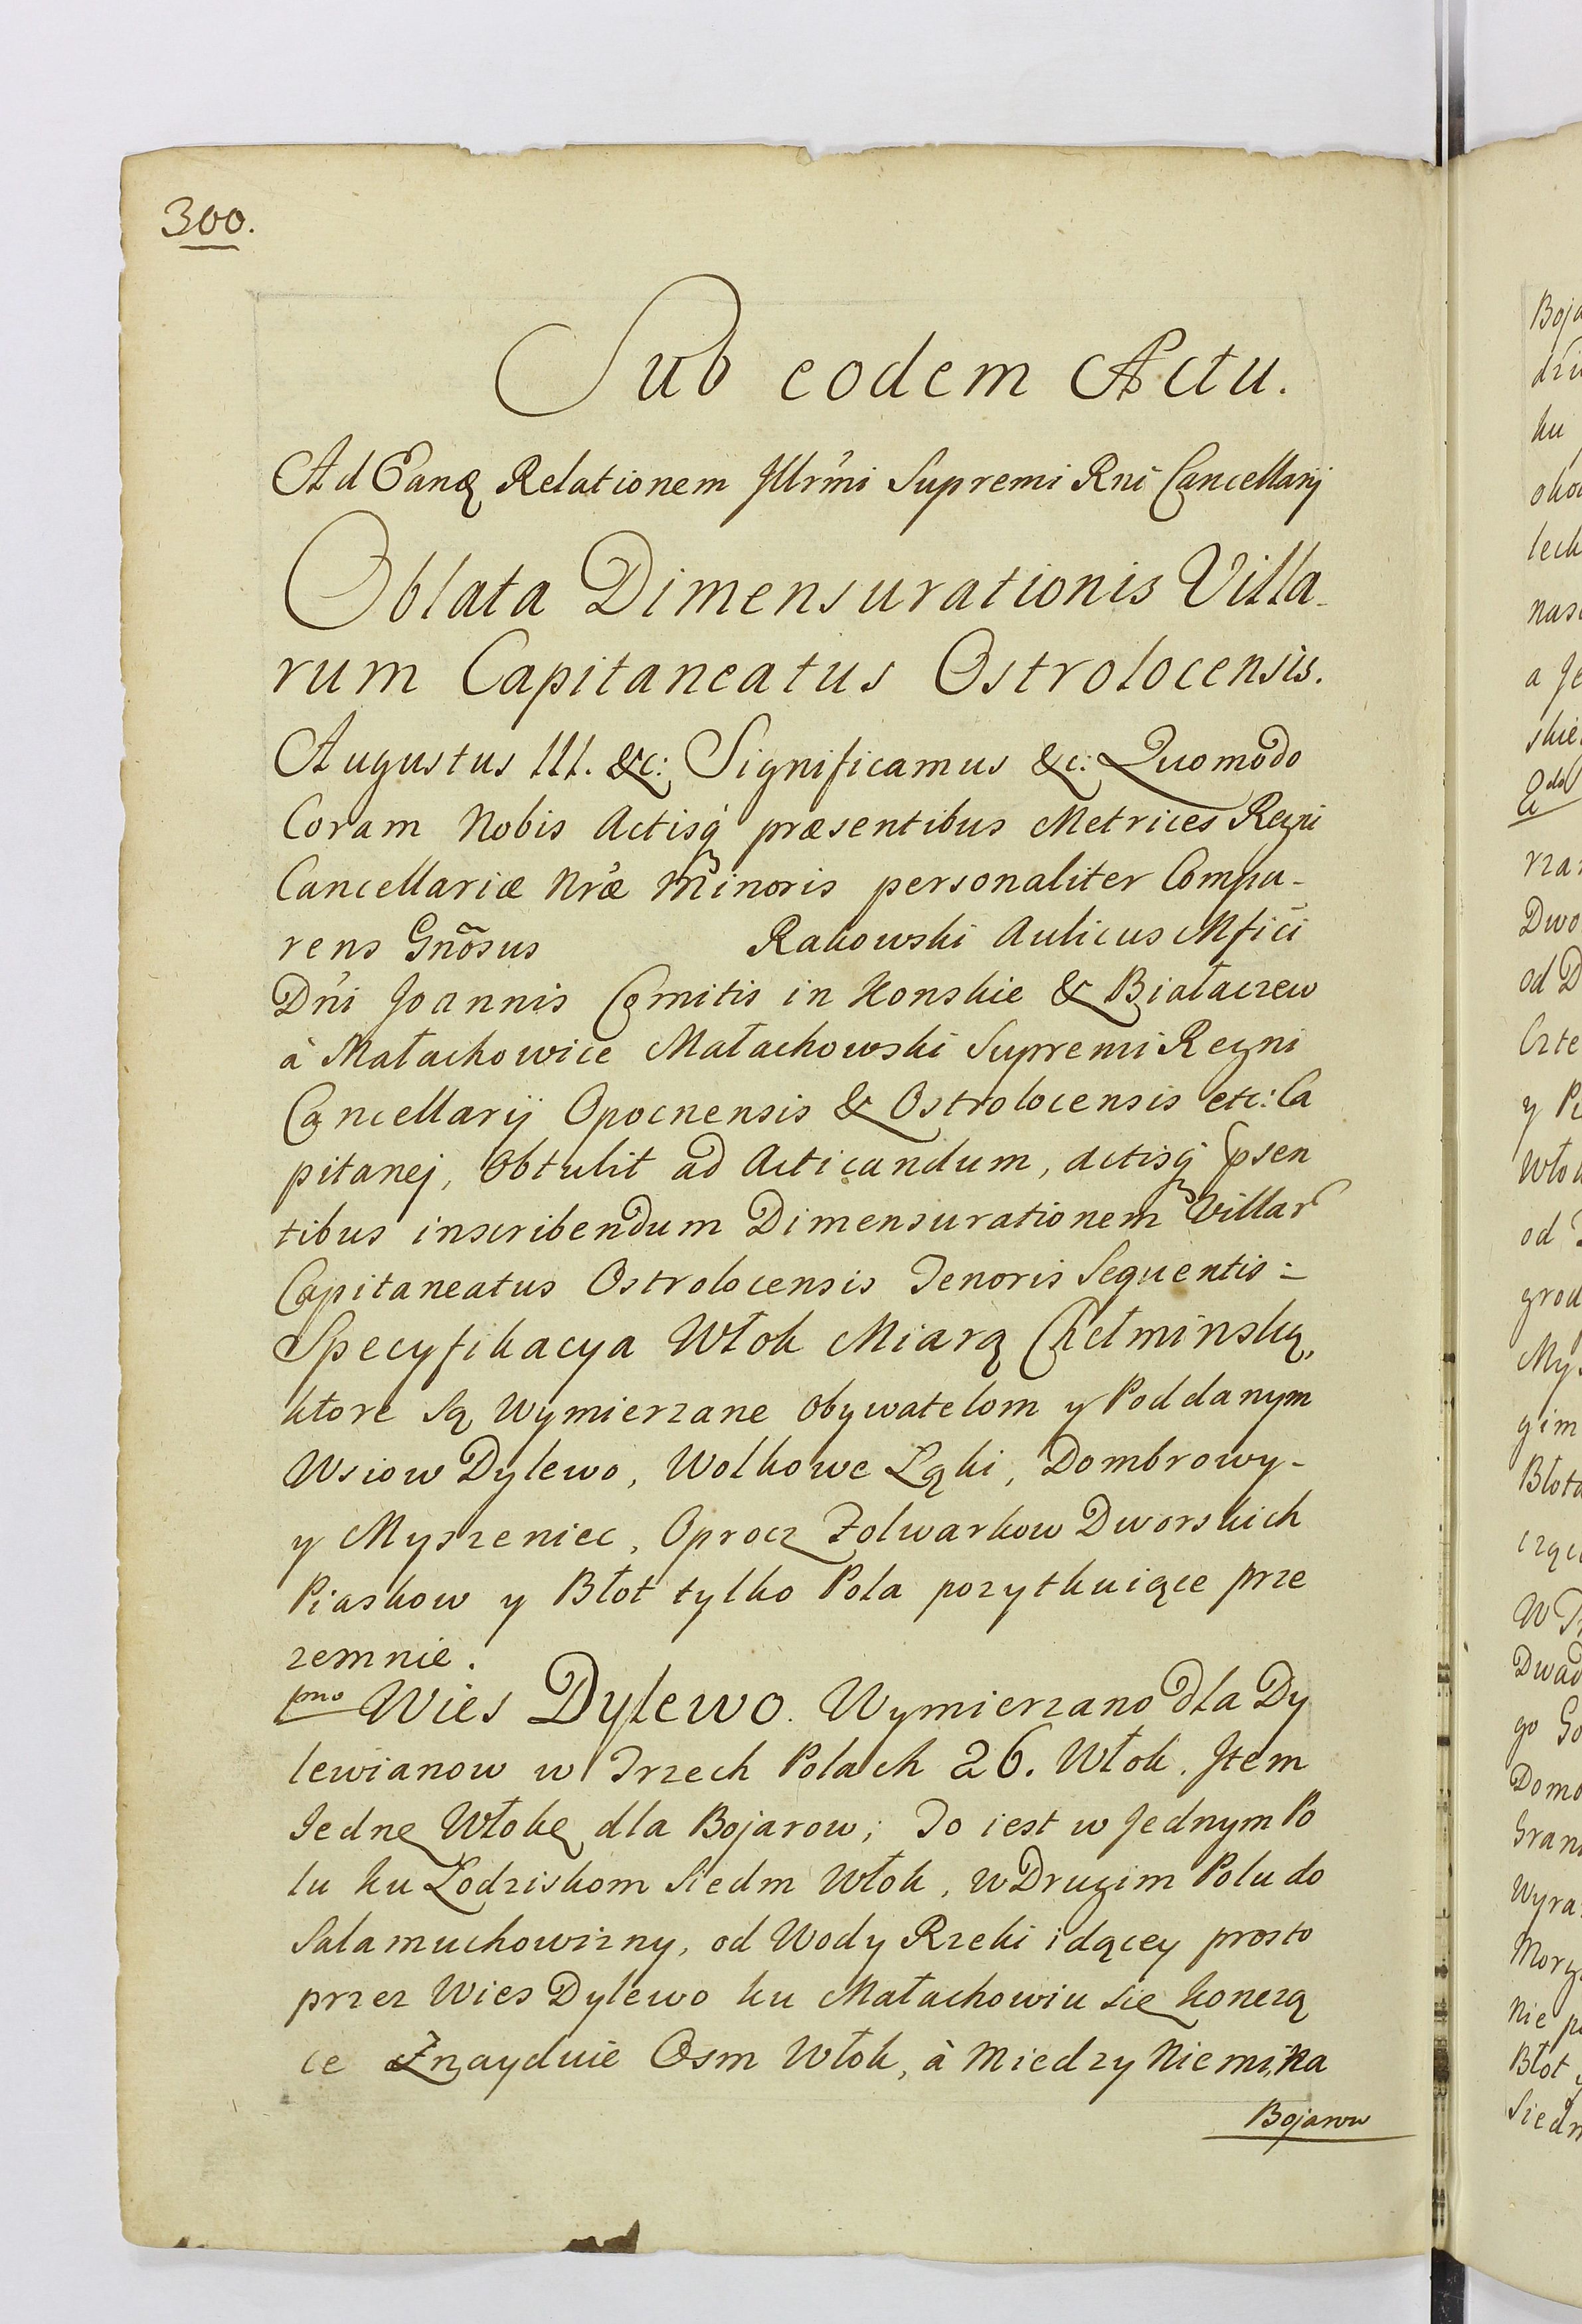 300.
Sub eodem Actu.
Ad Eandę Relationem Jllrm̃i Supremi Rni Cancellarij
Oblata Dimensurationis Villa-
rum Capitaneatus Ostrolocensis.
Augustus III. &c: Significamus &c: Quomodo
Coram Nobis Actisq́ præsentibus Metrices Regni
Cancellariæ Nræ Minoris personaliter Compa-
rens Gnõsus Rakowski Aulicus Mfici
Dni Joannis Comitis in Konskie & Białaczew
à Małachowice Małachowski Supremi Regni
Cancellarij Opocnensis & Ostrolocensis etc: Ca
pitanej, Obtulit ad Acticandum, actisq́ psen
tibus inscribendum Dimensurationem Villar
Capitaneatus Ostrolocensis Tenoris Sequentis :=
Specyfikacya Włok Miarą Chełminską,
ktore są Wymierzane Obywatelom y Poddanym
Wsiow Dylewo, Wolkowe Łąki, Dombrowy-
y Myszeniec, Oprocz Folwarkow Dworskich
Piaskow y Błot tylko Pola pozytkuiące prze
zemnie.
pmo Wies Dylewo. Wymierzano dla Dy
lewianow w Trzech Polach 26. Włok. Jtem
Jednę Włokę dla Bojarow; To iest w Jednym Po
lu ku Łodziskom Siedm Włok, w Drugim Polu do
Sałamuchowizny, od Wody Rzeki idącey prosto
przez Wies Dylewo ku Małachowiu się konczą
ce Znayduie Osm Włok, à Miedzy Niemi, Na
Bojarow